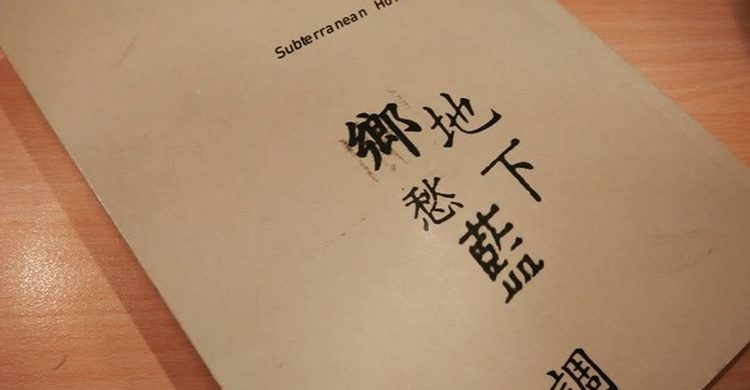 Subterranean
地下
鄉愁
藍調